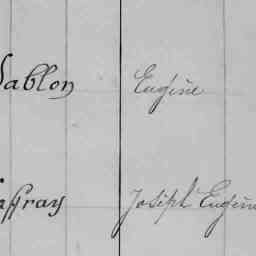 Sablon Eugène
affray Joseph Eugène